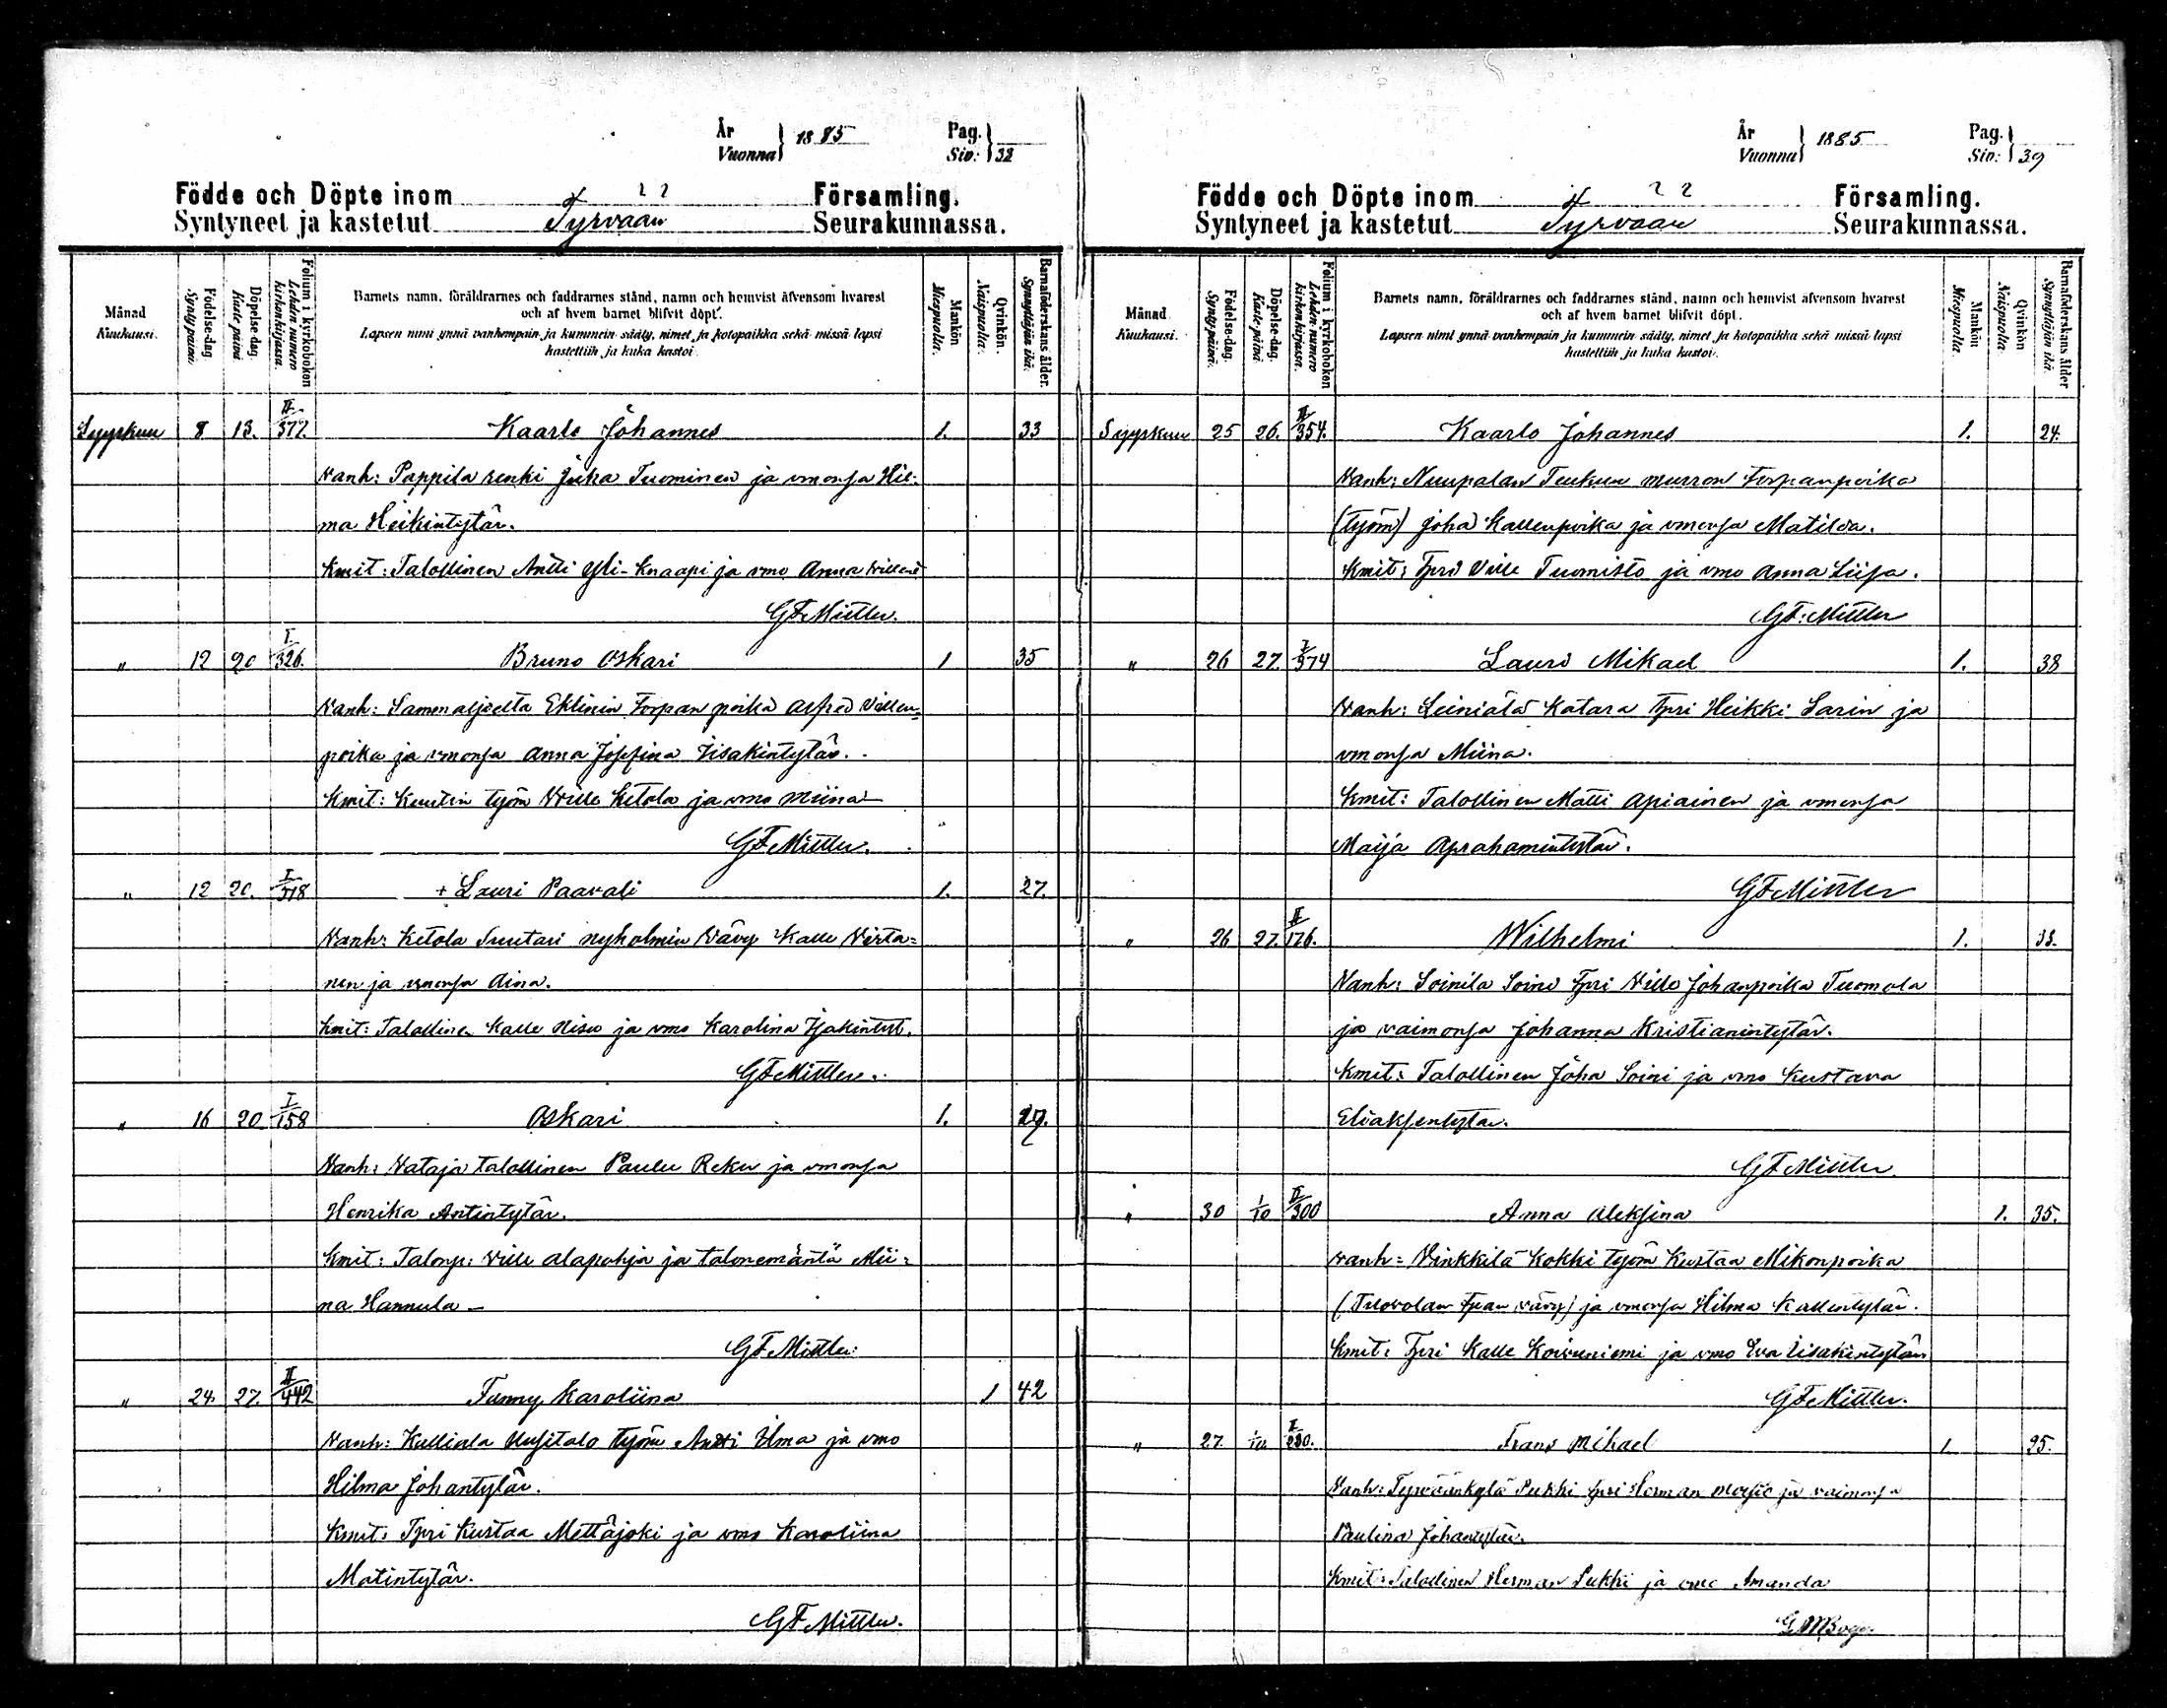 År
Vuonna } 1885
Pag.
Siv: } 32
Födde och Döpte inom Församling.
Syntyneet ja kastetut Tyrvään Seurakunnassa.
Månad
Kuukausi.
Födelse-dag.
Synty-päivä.
Döpelse-dag.
Kaste-päivä.
Folium i kyrkoboken
Lehden numero kirkonkirjassa.
Barnets namn, föräldrarnes och faddrarnes stånd, namn och hemvist äfvensom hvarest
och af hvem barnet blifvit döpt.
Lapsen nimi ynnä vanhempain ja kummein sääty, nimet ja kotopaikka sekä missä lapsi
kastettiin ja kuka kastoi.
Mankön
Miespuolta.
Qvinkön.
Naispuolta.
Barnaföderskans ålder.
Synnyttäjän ikä.
Syyskuu 8 13. II/377. Kaarlo Johannes 1. 33
Vanh: Pappila renki Juka Tuominen ja vmonsa Hil-
ma Heikintytär.
Kmit: Talollinen Antti Yli-Knaapi ja vmo Anna
GF Mittler.
" 12 20 I/326. Bruno Oskari 1 35
Vanh: Sammaljoelta Eklinin Torpan poika Alfred Villen-
poika ja vmonsa Anna Josefina Iisakintytär.
Kmit: Kuutin työm Ville Ketola ja vmo Miina
GF Mittler.
" 12 20. I/518 + Lauri Paavali 1. 27.
Vanh: Ketola Suutari Nyholmin Vävy Kalle Virta=
nen ja vmonsa Aina.
Kmit: Talollinen Kalle ja vmo Karolina Isakintyt.
GF Mittler.
" 16 20. I/158 Oskari 1. 29.
Vanh: Vataja talollinen Paulu Reku ja vmonsa
Henrika Antintytär.
Kmit: Talonp: Ville Alapohja ja talonemäntä Mii=
na Hannula —
GF Mittler.
" 24. 27. II/442 Fanny Karoliina 1 42
Vanh: Kalliala Uusitalo työm Antti Ulma ja vmo
Hilma Johantytär.
Kmit: Tpri Kustaa Mettäjoki ja vmo Karoliina
Matintytär.
GF Mittler.
År
Vuonna } 1885
Pag.
Siv: } 39
Födde och Döpte inom Församling.
Syntyneet ja kastetut Tyrvään Seurakunnassa.
Månad
Kuukausi.
Födelse-dag.
Synty-päivä.
Döpelse-dag.
Kaste-päivä.
Folium i kyrkoboken
Lehden numero kirkonkirjassa.
Barnets namn, föräldrarnes och faddrarnes stånd, namn och hemvist äfvensom hvarest
och af hvem barnet blifvit döpt.
Lapsen nimi ynnä vanhempain ja kummein sääty, nimet ja kotopaikka sekä missä lapsi
kastettiin ja kuka kastoi.
Mankön
Miespuolta.
Qvinkön
Naispuolta
Barnaföderskans ålder
Synnyttäjän ikä.
Syyskuu 25 26. II/354. Kaarlo Johannes 1. 24.
Vanh: Nuupalan Torpanpoika
(työm) Joha Kallenpoika ja vmonsa Matilda.
Kmit: Tpri Ville Tuomisto ja vmo Anna Liisa.
GF. Mittler
" 26 27. I/574 Lauri Mikael 1. 38
Vanh: Leiniälä Katara tpri Heikki Sarin ja
vmonsa Miina.
Kmit: Talollinen Matti Apiainen ja vmonsa
Maija Aprahamintytär.
GF Mittler
" 26 27. II/176. Wilhelmi 1. 33.
Vanh: Soinila Soini Tpri Ville Johanpoika Tuomola
ja vaimonsa Johanna Kristianintytär.
Kmit: Talollinen Joha Soini ja vmo Kustava
Eliaksentytär.
GF Mittler
" 30 1/10 II/300 Anna Aleksina 1. 35.
Vanh: Vinkkilä Kokki työm Kustaa Mikonpoika
( Tpan vävy) ja vmonsa Hilma Kallentytär.
Kmit: Tpri Kalle Koivuniemi ja vmo Eva Iisakintytär
GF Mittler.
" 27. 1/10. I/230. Frans Mikael 1. 25.
Vanh: Tyrväänkylä Pukki tpri Herman ja vaimonsa
Paulina Johantytär.
Kmit: Talollinen Herman Pukki ja vmo Amanda